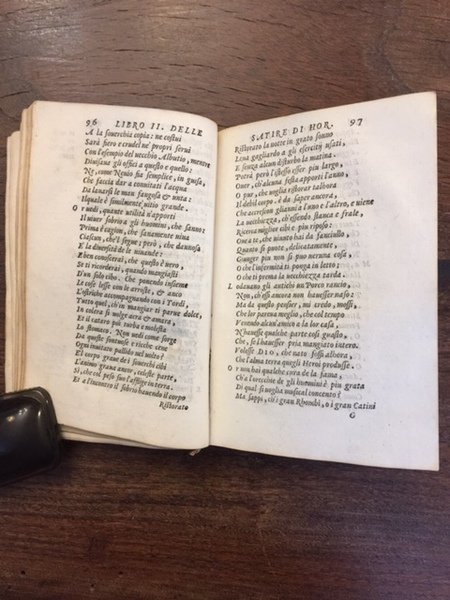 96 LIBRO II. DELLE
A la souerchia copia: ne costui
Sarà fiero e crudel ne' proprij serui
Con l'esempio del vecchio Albutio, mentre
Diuisaua gli offici a questo e quello:
Ne, come Neuio fia semplice, in guisa,
Che faccia dar a conuitati l'acqua
Da lauarsi le man fangosa & unta:
Ilquale è similmente uitio grande.
Or uedi, quante utilità n'apporti
Il uiuer sobrio a gli huomini, che sanno:
Prima è cagion, che sanamente uiua
Ciascun, che'l segue: però, che dannosa
E la diuersità de le uiuande:
E ben conoscerai, che questo è uero,
Se ti ricorderai, quando mangiasti
De' cibi soli. Che ponendo insieme
Le cose lesse con le arroste, & anco
L'ostriche accompagnando con i Tordi,
Tutto quel, ch'in mangiar ti parue dolce,
In colera si uolge atra & amara,
Et il cataro poi turba e molesta
Lo stomaco. Non uedi come sorge
Da queste sontuose e ricche cene
Ogni inuitato pallido nel uolto?
E'l corpo graue de i souerchi cibi
L'animo graua ancor, celeste parte,
Sì, che col peso suo l'affige in terra.
Et a l'incontro il sobrio hauendo il corpo
Ristorato
SATIRE DI HOR. 97
Ristorato la notte in grato sonno
Lena gagliardo a gli esercitij usati,
E senza alcun disturbo la matina.
Potrà però l'istesso esser piu largo,
Ouer, ch'alcuna festa apporti l'anno,
O pur, che uoglia ristorar talhora
Il debil corpo. è da saper ancora,
Che accrescon gli anni a l'uno e l'altro, e uiene
La uecchiezza, ch'essendo stanca e frale,
Ricerca miglior cibi e piu riposo:
Ome a te, che uiuuto hai da fanciullo,
Quanto si puote, delicatamente,
Giunger piu non si può neruna cosa,
O che l'infermità ti ponga in letto:
O che ti prema la uecchiezza tarda.
Lodauano gli antichi un Porco rancio,
Non, ch'essi ancora non hauesser naso:
Ma questo per pensier, mi credo, mossi,
Che lor parena meglio, che col tempo
Venendo alcun'amico a la lor casa,
N'hauesse qualche parte così guasto,
Che, se l'hauesser pria mangiato intero.
Volesse DIO, che nato fossi alhora,
Che l'alma terra quegli Heroi produsse.
Or non hai qualche cura de la fama,
Ch'a l'orecchie de gli huomini è piu grata
Di qual si uoglia musical concento?
Ma sappi, ch'i gran Rhombi, o i gran Catini
G